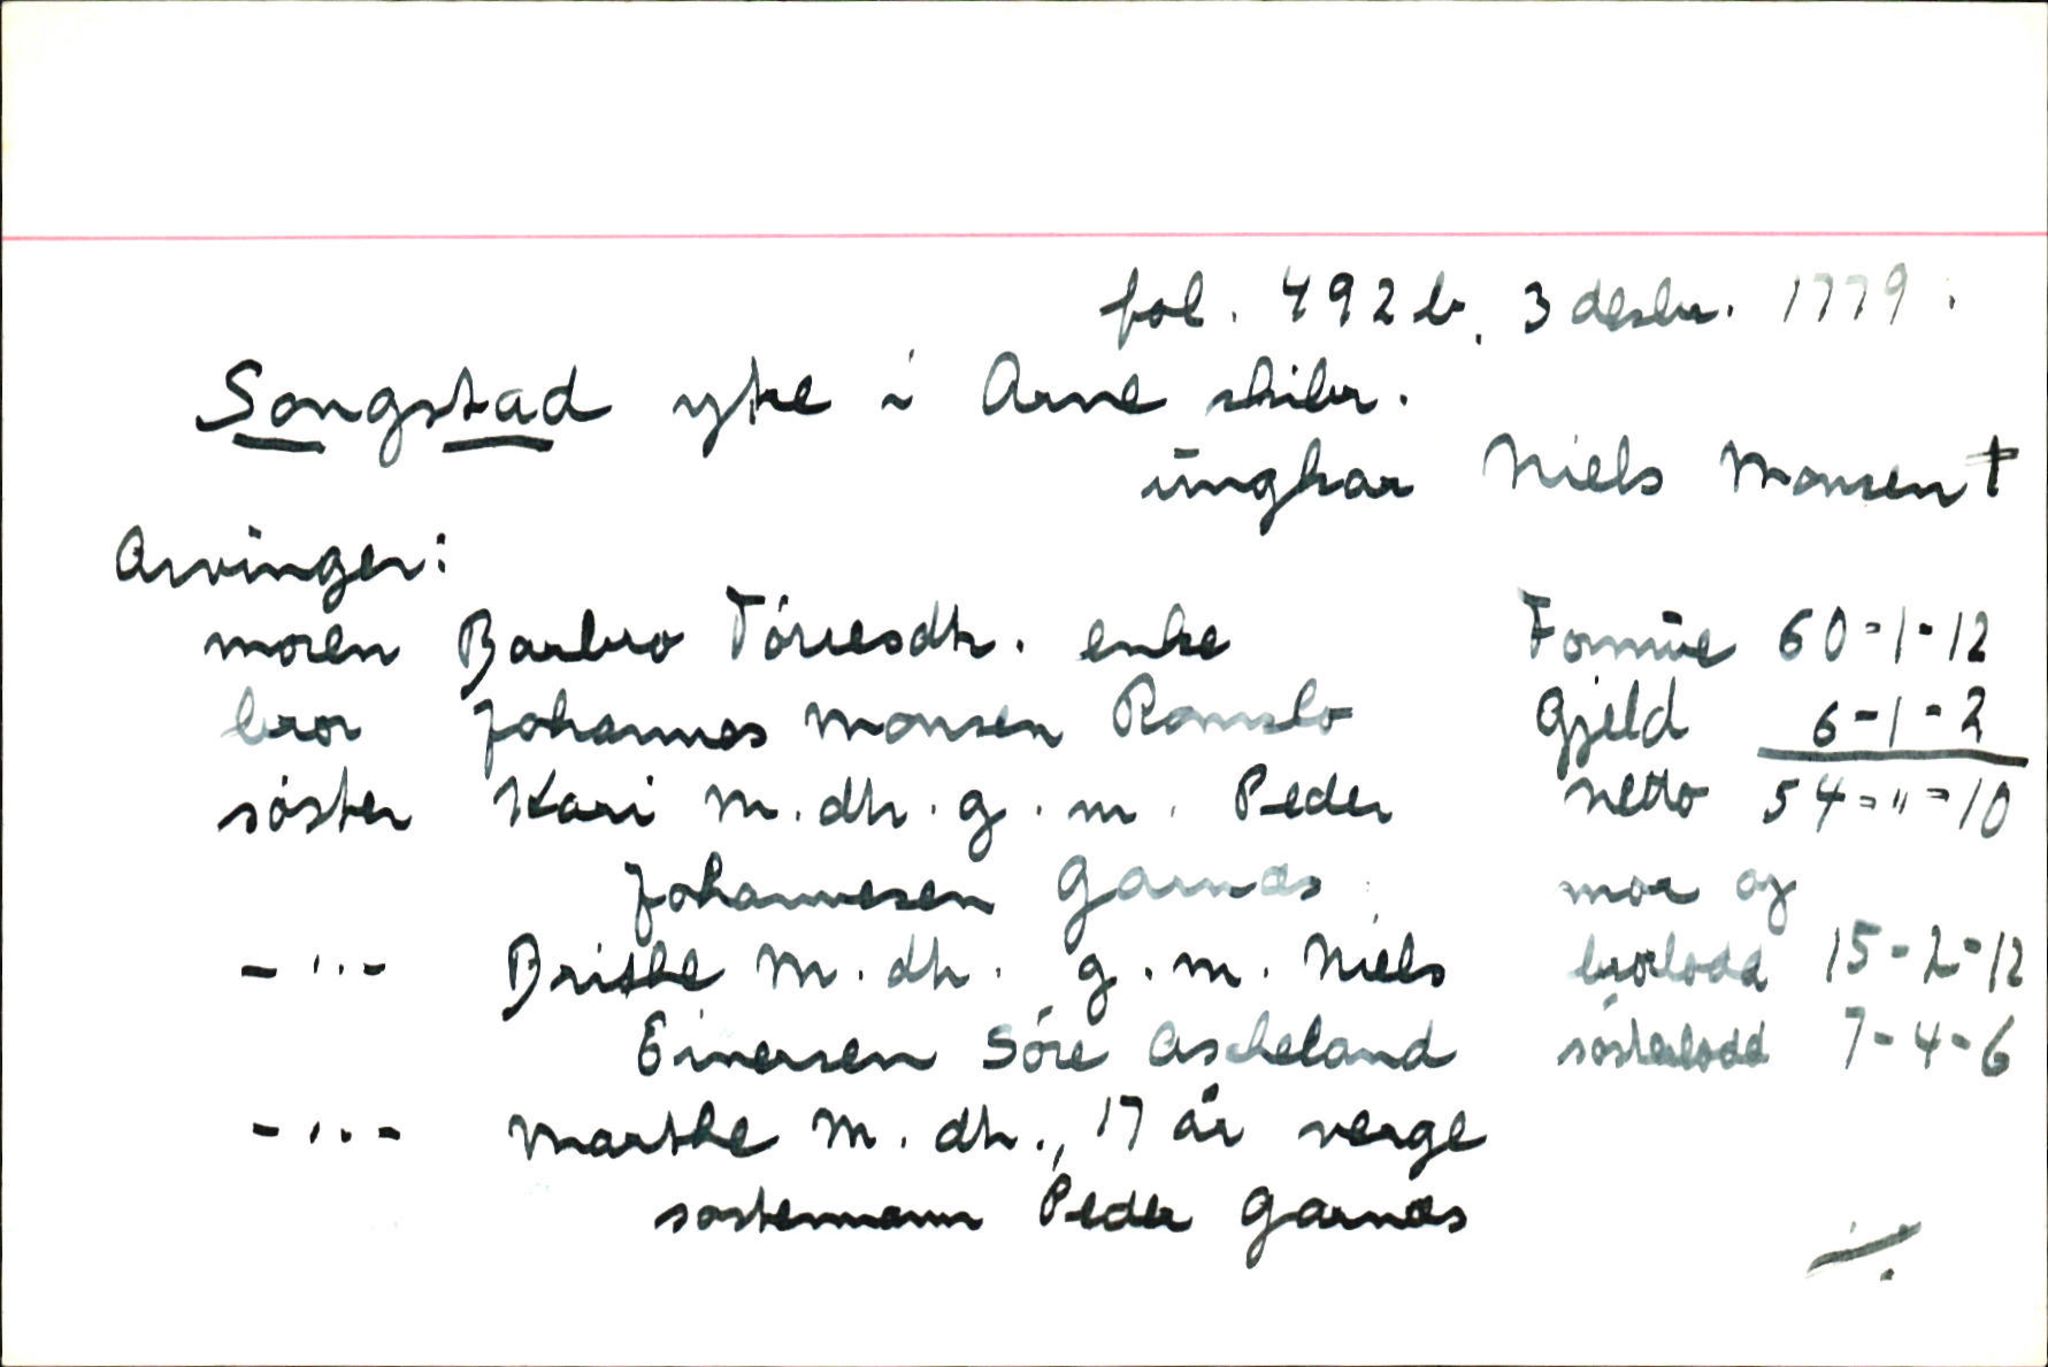 fol. 492 b. 3 desbr. 1779.
Songstad ytre i Arne skibr.
ungkar Niels Monsen †
Arvinger:
moren Barbro Tórresdtr. enke Formue 60-1-12
bror Johannes Monsen Romslo Gjeld 6-1-2
sóster Kari M.dtr. g.m. Peder netto 54-"-10
Johannesen Garnæs mor og
-"- Brithe M.dtr. g.m. Niels brorlodd 15-2-12
Einersen Sóre Ascheland sósterlodd 7-4-6
-"- Marthe M.dtr., 17 år verge
sostermann Peder Garnæs
./.